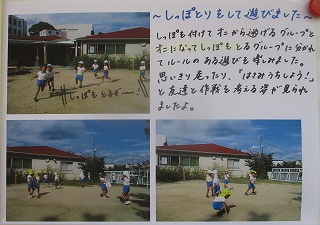 ～しっぽとりをして遊びました～
しっぽを付けてオニから逃げるグループと
オニになってしっぽをとるグループに分かれ
てルールのある遊びを楽しみました。
思いきり走ったり、「はさみうちしよう!」
と友達と作戦を考える姿が見られ
ましたよ。
しっぽをとるぞ～!